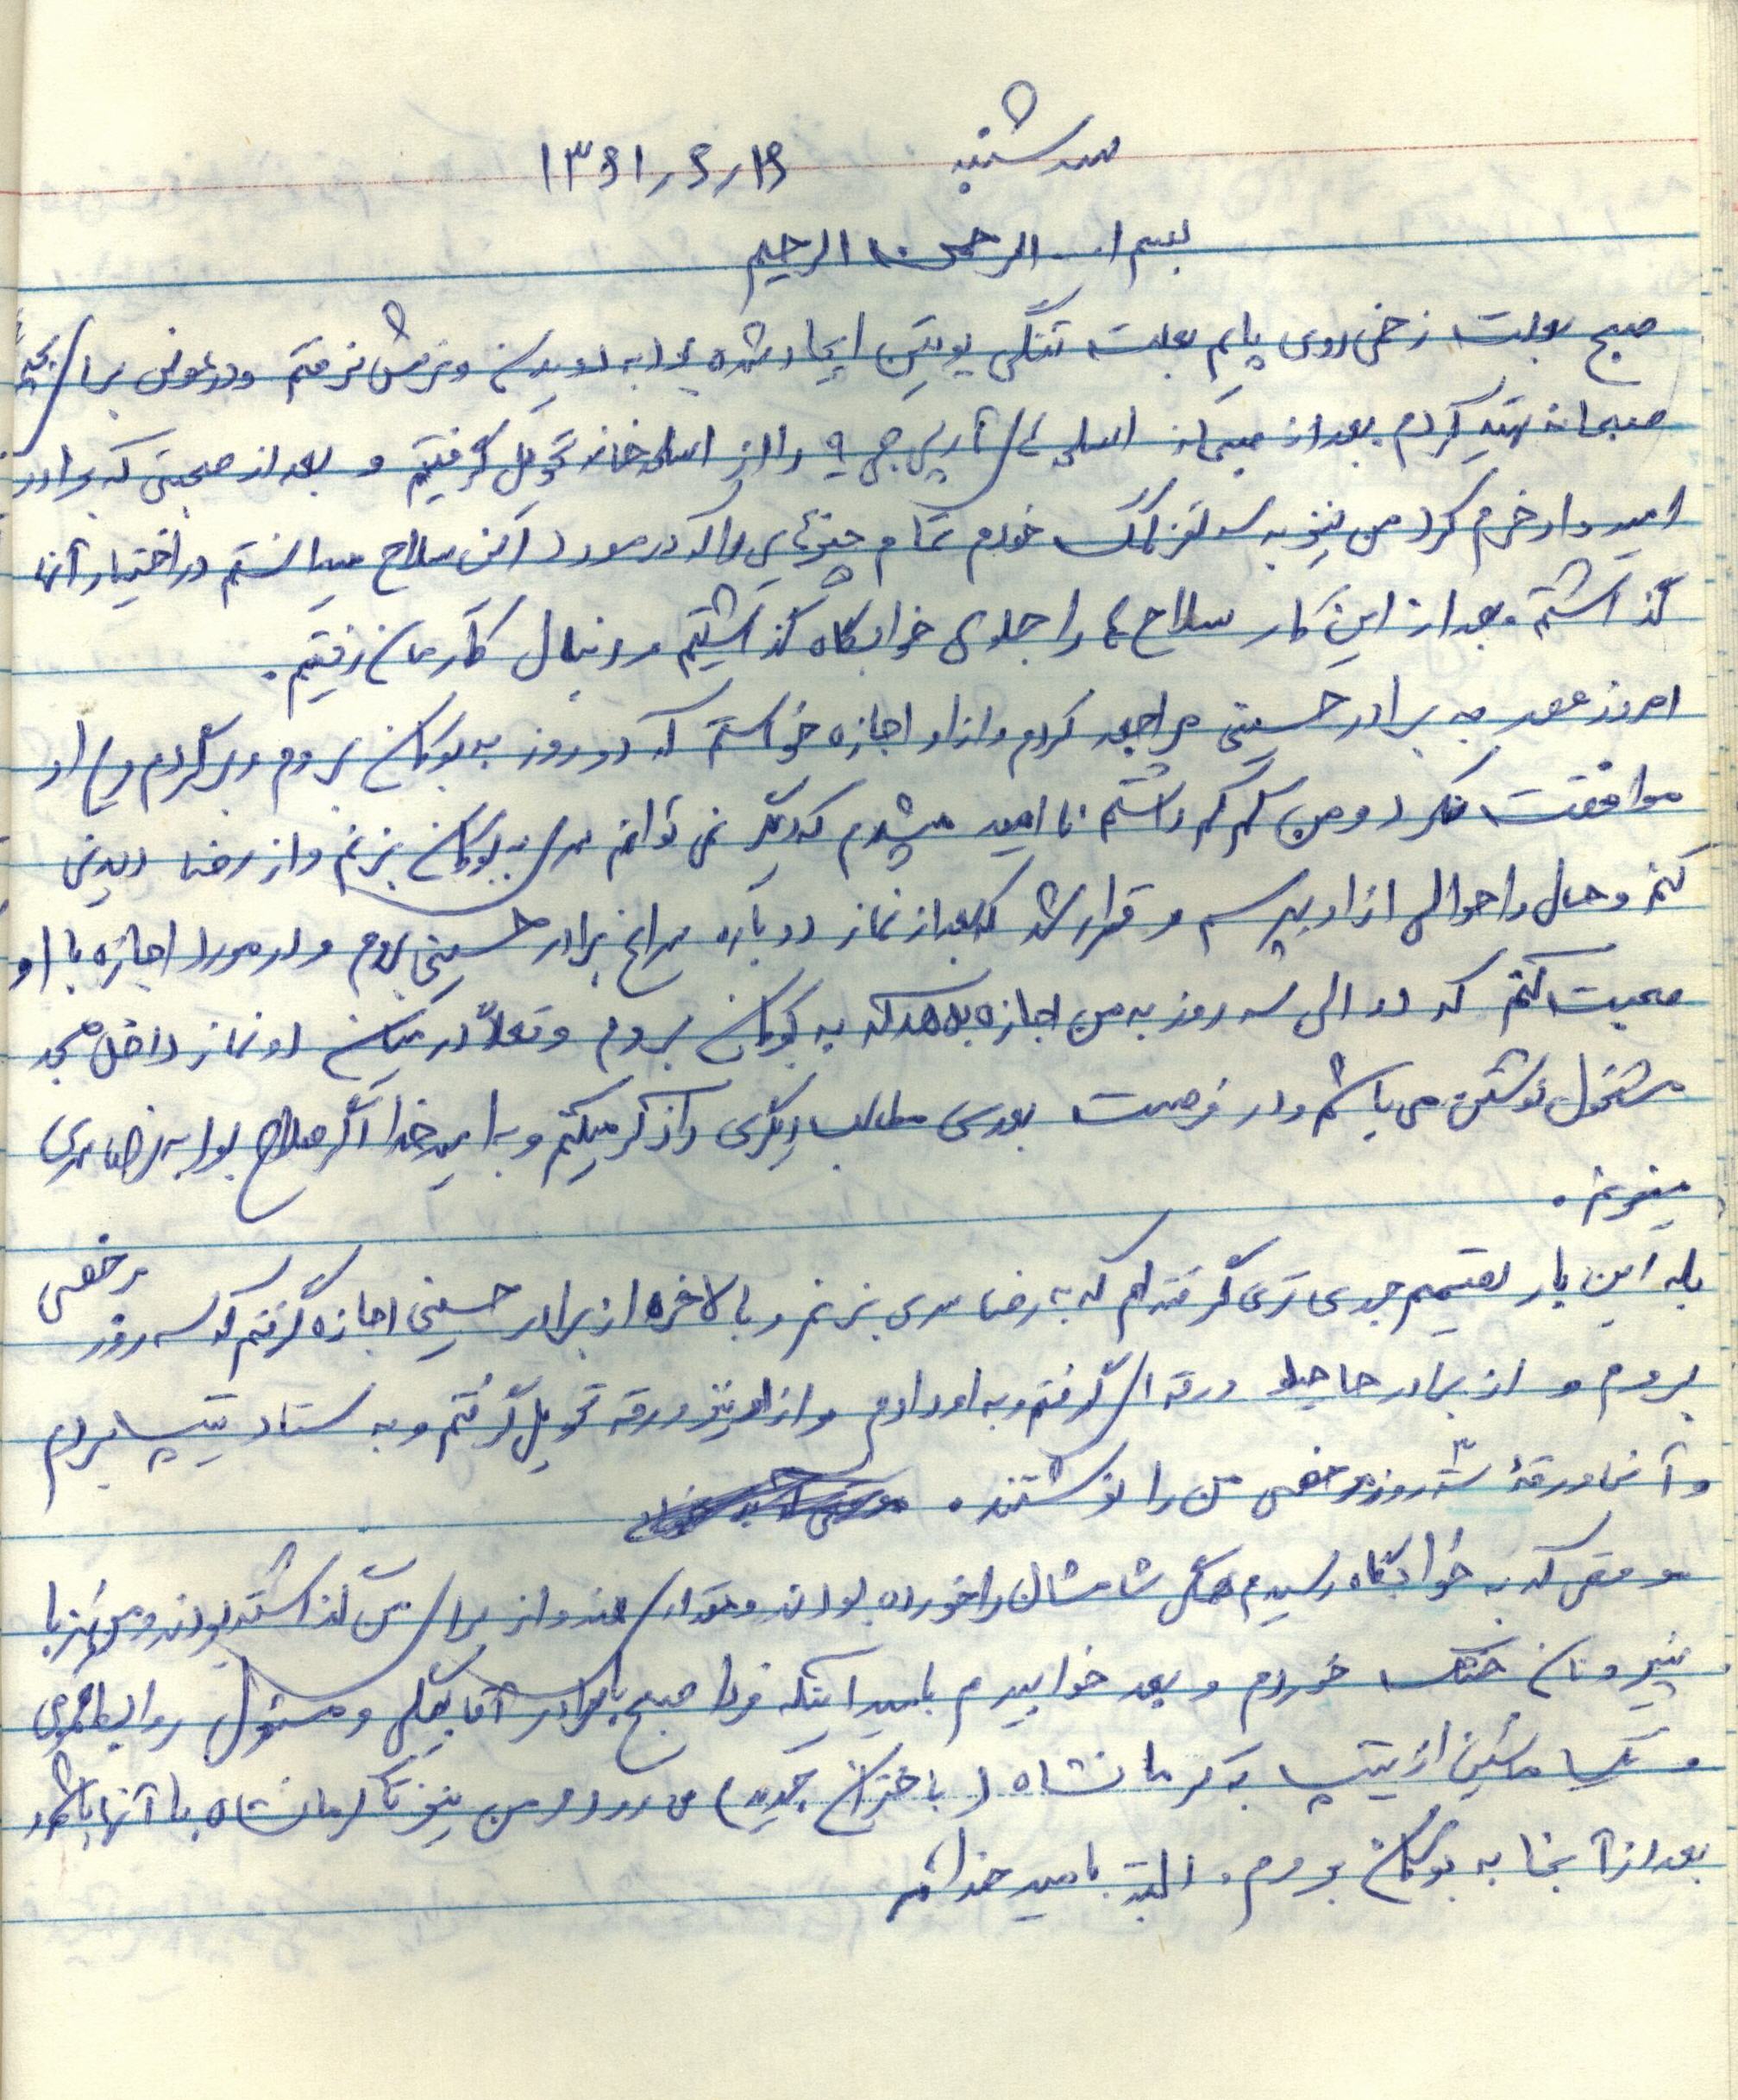 سه شنبه ۱۳۶۱ر۵ر۱۹
بسم ا... الرحمن الرحیم
صبح بعلت زخمی روی پایم بعلت تنگی پوتین ایجاد شده بود به دویدن و نرمش نرفتم و در عوض برای بچه‌ها
صبحانه تهیه کردم بعد از صبحانه اسلحه‌های آرپی جی ۹ را از اسلحه خانه تحویل گرفتیم و بعد از صحبتی که برادر
امیدوار خرم کرد من نیز به سه نفر کمک خودم تمام چیزهای را که در مورد این سلاح میدانستم در اختیار آنها
گذاشتم و بعد از این کار سلاح ها را جلوی خوابگاه گذاشتیم و دنبال کارمان رفتیم.
امروز عصر به برادر حسینی مراجعه کردم و از او اجازه خواستم که دو روز به بوکان بروم و برگردم ولی او
موافقت نکرد و من کم کم داشتم نا امید میشدم که دیگر نمی توانم سری به بوکان بزنم و از رضا دیدنی
کنم و حال و احوالی از او بپرسم و قرار شد که بعد از نماز دوباره سراغ برادر حسینی بروم و در مورد اجازه با او
صحبت کنم که دو الی سه روز به من اجازه بدهد که به بوکان بروم و فعلاً در میان دو نماز داخل مسجد
مشغول نوشتن می باشم و در فرصت بعدی مطالب دیگری را ذکر میکنم و به امید خدا اگر صلاح بود به رضا سری
میزنم.
بله این بار تصمیم جدی تری گرفته‌ام که به رضا سری بزنم و بالاخره از برادر حسینی اجازه گرفتم که سه روز مرخصی
بروم و از برادر حاجیلو ورقه ای گرفتم و به او دادم و از او نیز ورقه تحویل گرفتم و به ستاد تیپ بردم
و آنها ورقهٔ سه روز مرخصی من را نوشتند.
موقعی که به خوابگاه رسیدم همگی شامشان را خورده بودند و مقداری هندوانه برای من گذاشته بودند و من نیز با
پنیر و نان خشک خوردم و بعد خوابیدم بامید اینکه فردا صبح با برادر آقا بیگلی و مسئول روابط عمومی
و یک ماشین از تیپ به کرمانشاه (باختران جدید) می رود و من نیز تا کرمانشاه با آنها باشم و
بعد از آنجا به بوکان بروم. البته بامید خدا